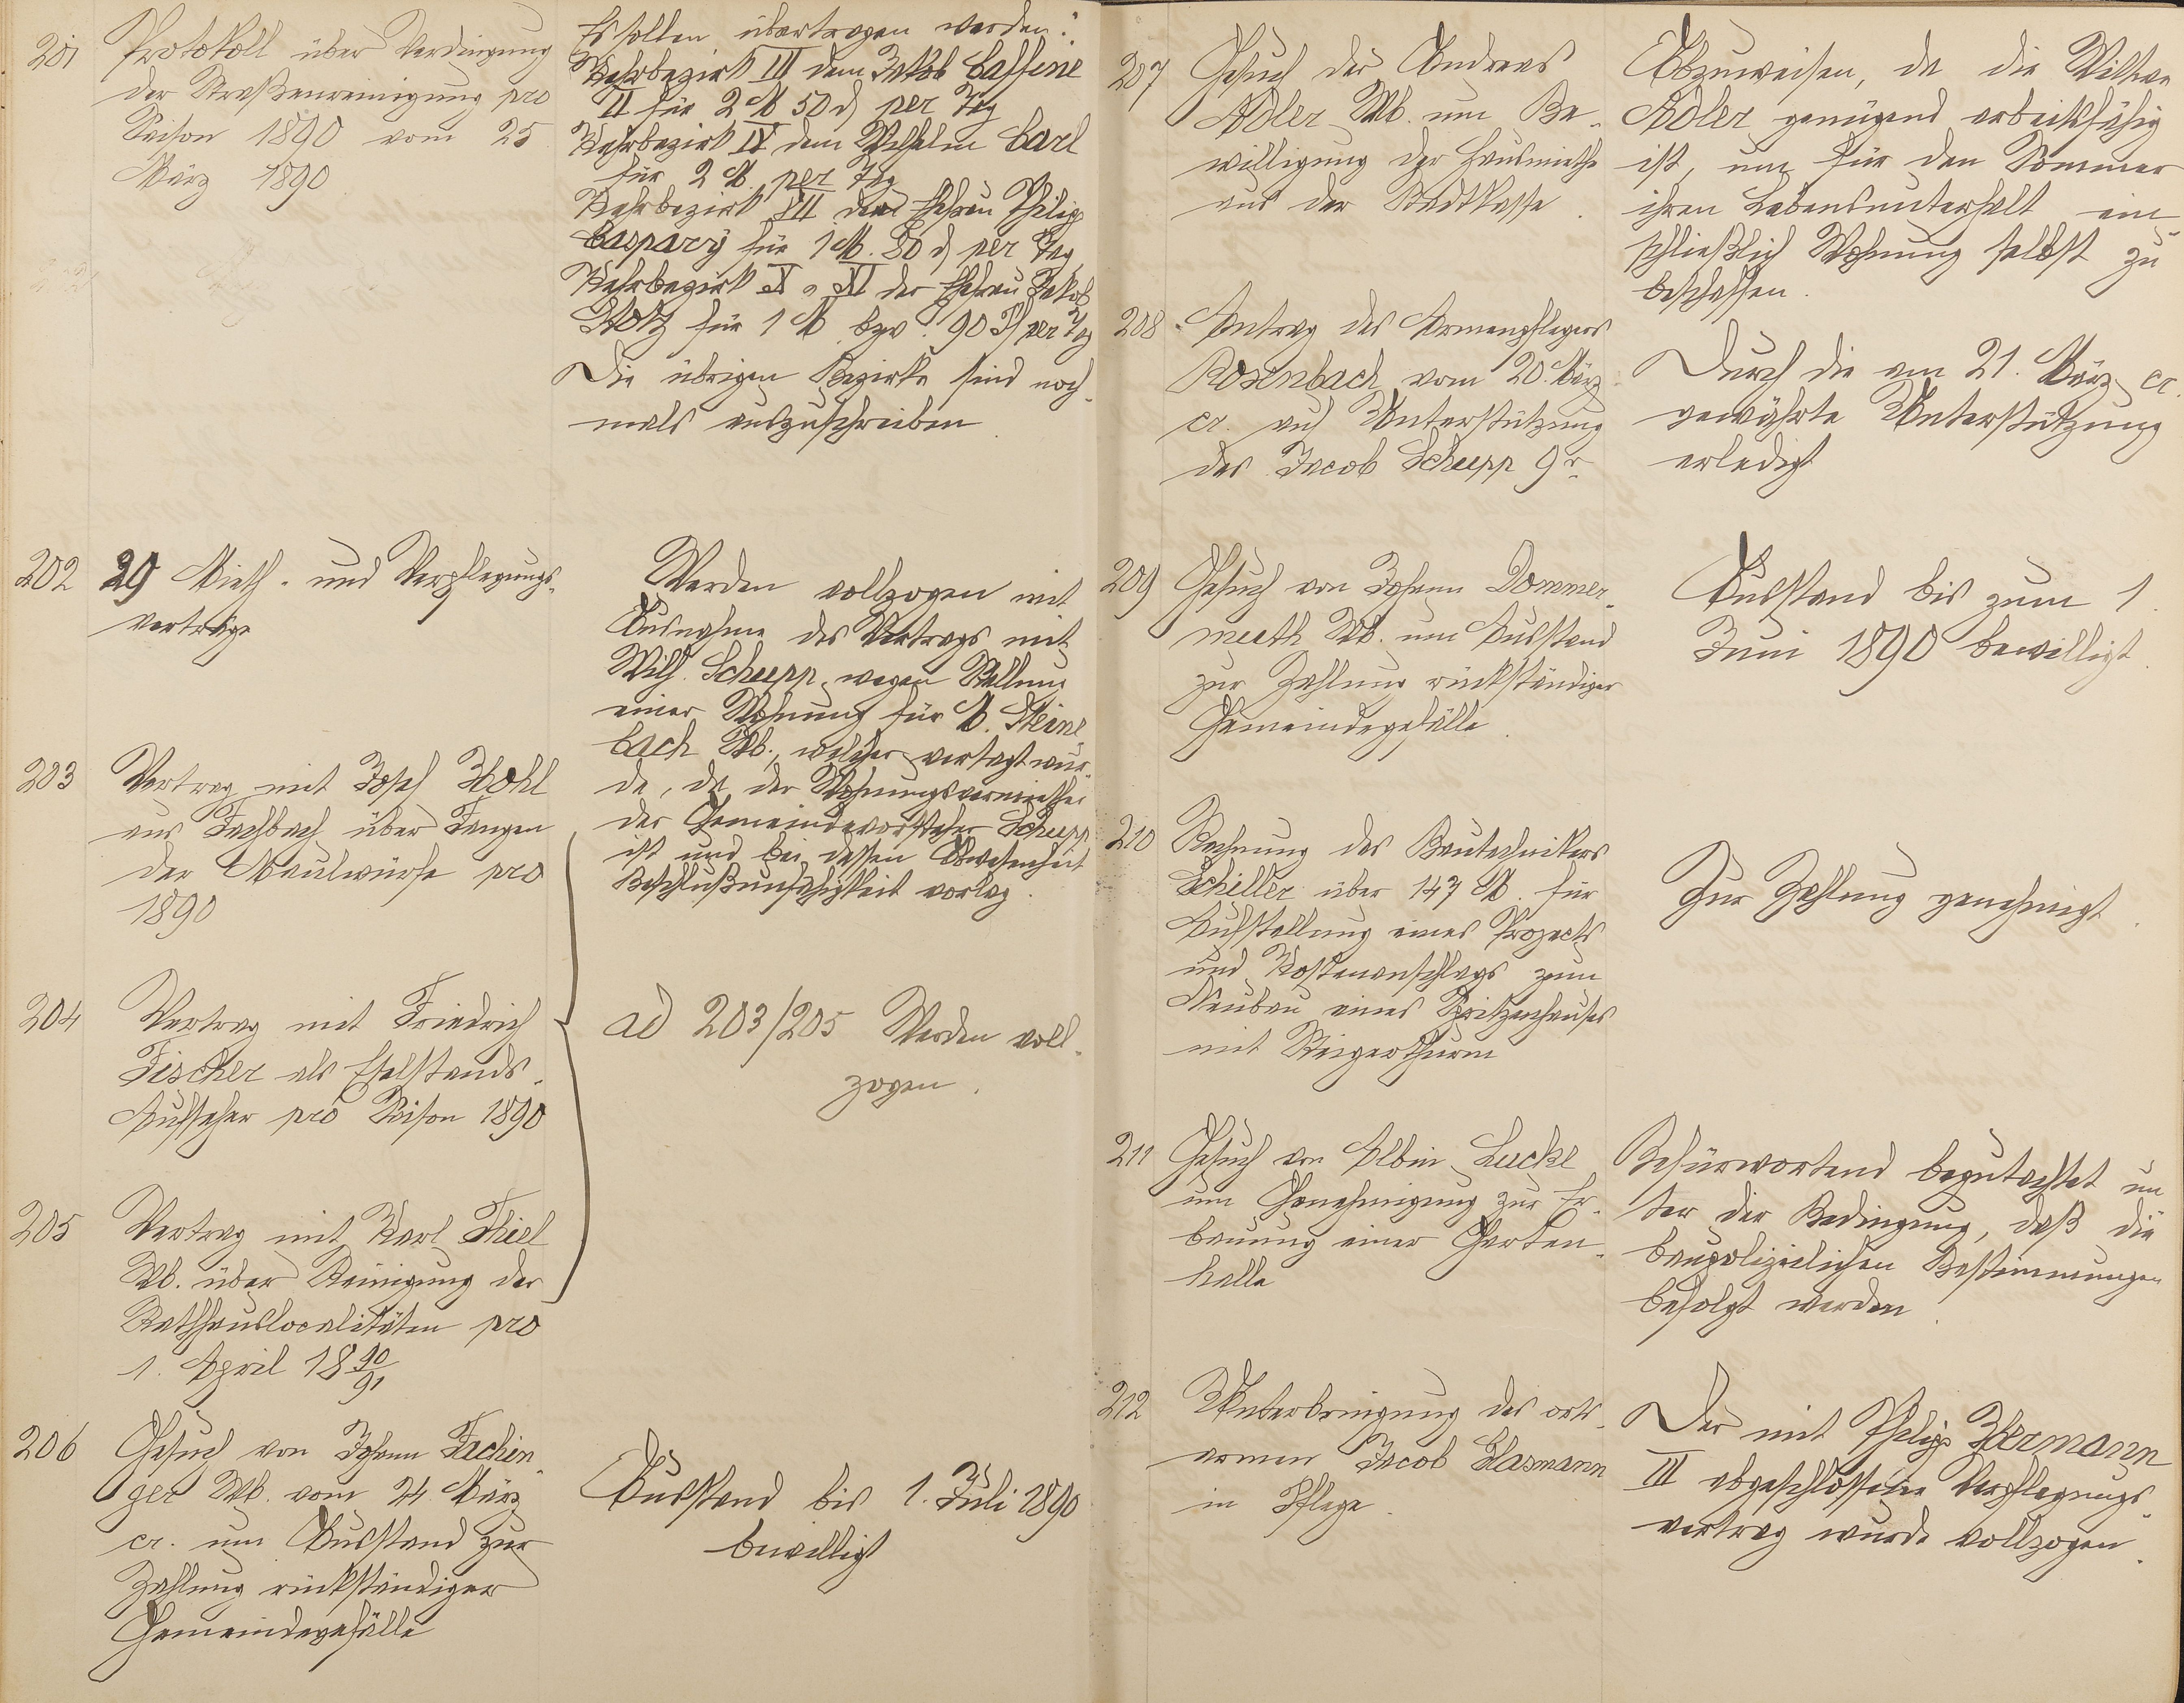 201
Protokoll über Verdingung
der Straßenreinigung pro
Saison 1890 vom 25
März 1890
Es sollen übertragen werden:
Kehrbezirk III dem Jakob Caffine
II für 2 M 50 d per Tag
Kehrbezirk IV dem Wilhelm Carl
für 2 M. per Tag
Kehrbezirk VII der Ehefrau Philipp
Caspary für 1 M. 80 d per Tag
Kehrbezirk X u XI der Ehefrau Jakob
Stotz für 1 M bzw. 90 Pf per Tag
Die übrigen Bezirke sind noch-
mals auszuschreiben
202
29 Mieth- und Verpflegungs-
verträge
Werden vollzogen mit
Ausnahme des Vertrags mit
Wilh. Schupp wegen Stellung
einer Wohnung für A. Steine
bach Wb., welcher vertagt wur-
de, da der Wohnungsvermiether
der Gemeindevorsteher Schupp
ist und bei dessen Abwesenheit
Beschlußunfähigkeit vorlag.
203
Vertrag mit Josef Hohl
aus Fachbach über Fangen
der Maulwürfe pro
1890
204
Vertrag mit Friedrich
Fischer als Eselstands-
Aufseher pro Saison 1890
ad 203/205 Werden voll-
zogen.
205
Vertrag mit Karl Thiel
Wb. über Reinigung der
Rathhauslocalitäten pro
1. April 18 90/91
206
Gesuch von Johann Fachin
ger Wb. vom 24 März
cr. um Ausstand zur
Zahlung rückständiger
Gemeindegefälle
Ausstand bis 1. Juli 1890
bewilligt
207
Gesuch der Andreas
Adler Wb. um Be-
willigung der Hausmiethe
aus der Stadtkasse.
Abzuweisen, da die Wittwe
Adler genügend arbeitsfähig
ist, um für den Sommer
ihren Lebensunterhalt ein-
schließlich Wohnung selbst zu
beschaffen.
208
Antrag des Armenpflegers
Rosenbach vom 20. März
cr. auf Unterstützung
des Jacob Schupp 9r
Durch die am 21. März cr.
gewährte Unterstützung
erledigt
209
Gesuch von Johann Dommer-
muth Wb. um Ausstand
zur Zahlung rückständiger
Gemeindegefälle.
Ausstand bis zum 1.
Juni 1890 bewilligt.
210
Rechnung des Bautechnikers
Schiller über 147 M. für
Aufstellung eines Projects
und Kostenanschlags zum
Neubau eines Spritzenhauses
mit Steigerthurm
Zur Zahlung genehmigt.
211
Gesuch von Albin Lucke
um Genehmigung zur Er-
bauung einer Garten-
halle
Befürwortend begutachtet un
ter der Bedingung, daß die
baupolizeilichen Bestimmungen
befolgt werden.
212
Unterbringung des orts-
armen Jacob Glasmann
in Pflege.
Der mit Philipp Hermann
III abgeschlossene Verpflegungs-
vertrag wurde vollzogen.